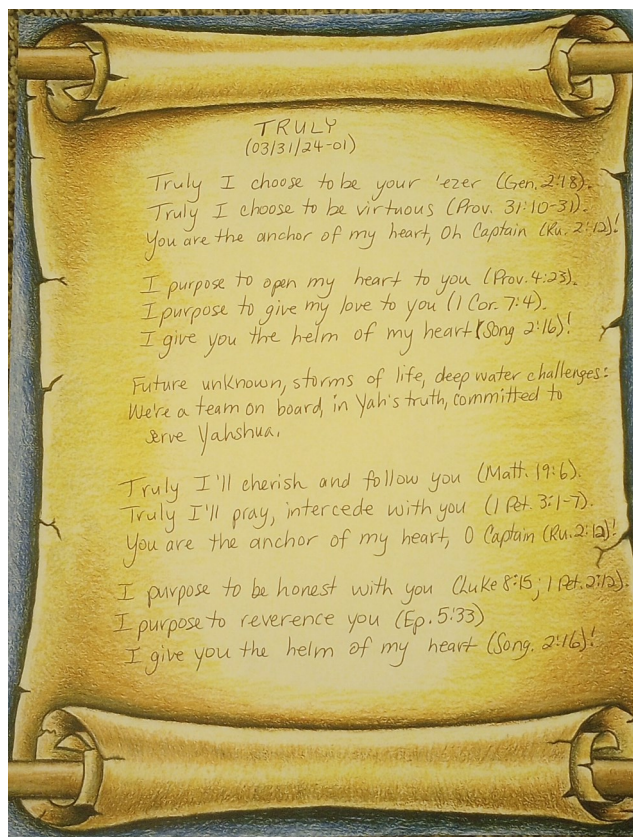 TRULY
(03/31/24-01)
Truly I choose to be your 'ezer (Gen. 2:18).
Truly I choose to be virtuous (Prov. 31:10-31).
You are the anchor of my heart, Oh Captain (Ru. 2:12)!
I purpose to open my heart to you (Prov. 4:23).
I purpose to give my love to you (1 Cor. 7:4).
I give you the helm of my heart (Song 2:16)!
Future unknown, storms of life, deep water challenges:
We're a team on board, in Yah's truth, committed to
serve Yahshua.
Truly I'll cherish and follow you (Matt. 19:6).
Truly I'll pray, intercede with you (1 Pet. 3:1-7).
You are the anchor of my heart, O Captain (Ru. 2:12)!
I purpose to be honest with you (Luke 8:15; 1 Pet. 2:12).
I purpose to reverence you (Ep. 5:33)
I give you the helm of my heart (Song. 2:16)!